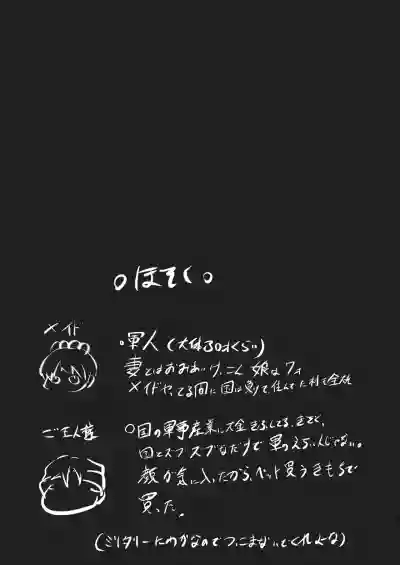 ○ほそく○
メイド
・軍人（大体30才くらい）
妻とはおみあいけっこん 娘は7才
メイドやってる間に国は負けて住んでた村も全焼
ご主人様
○国の軍事産業に大金をふしてる
国とズブズブなだけで軍のえらい人じゃない。
顔が気に入ったから、ペット買うきもちで
買った。
（ミリタリーにわかなのでつっこまないでくれよな）